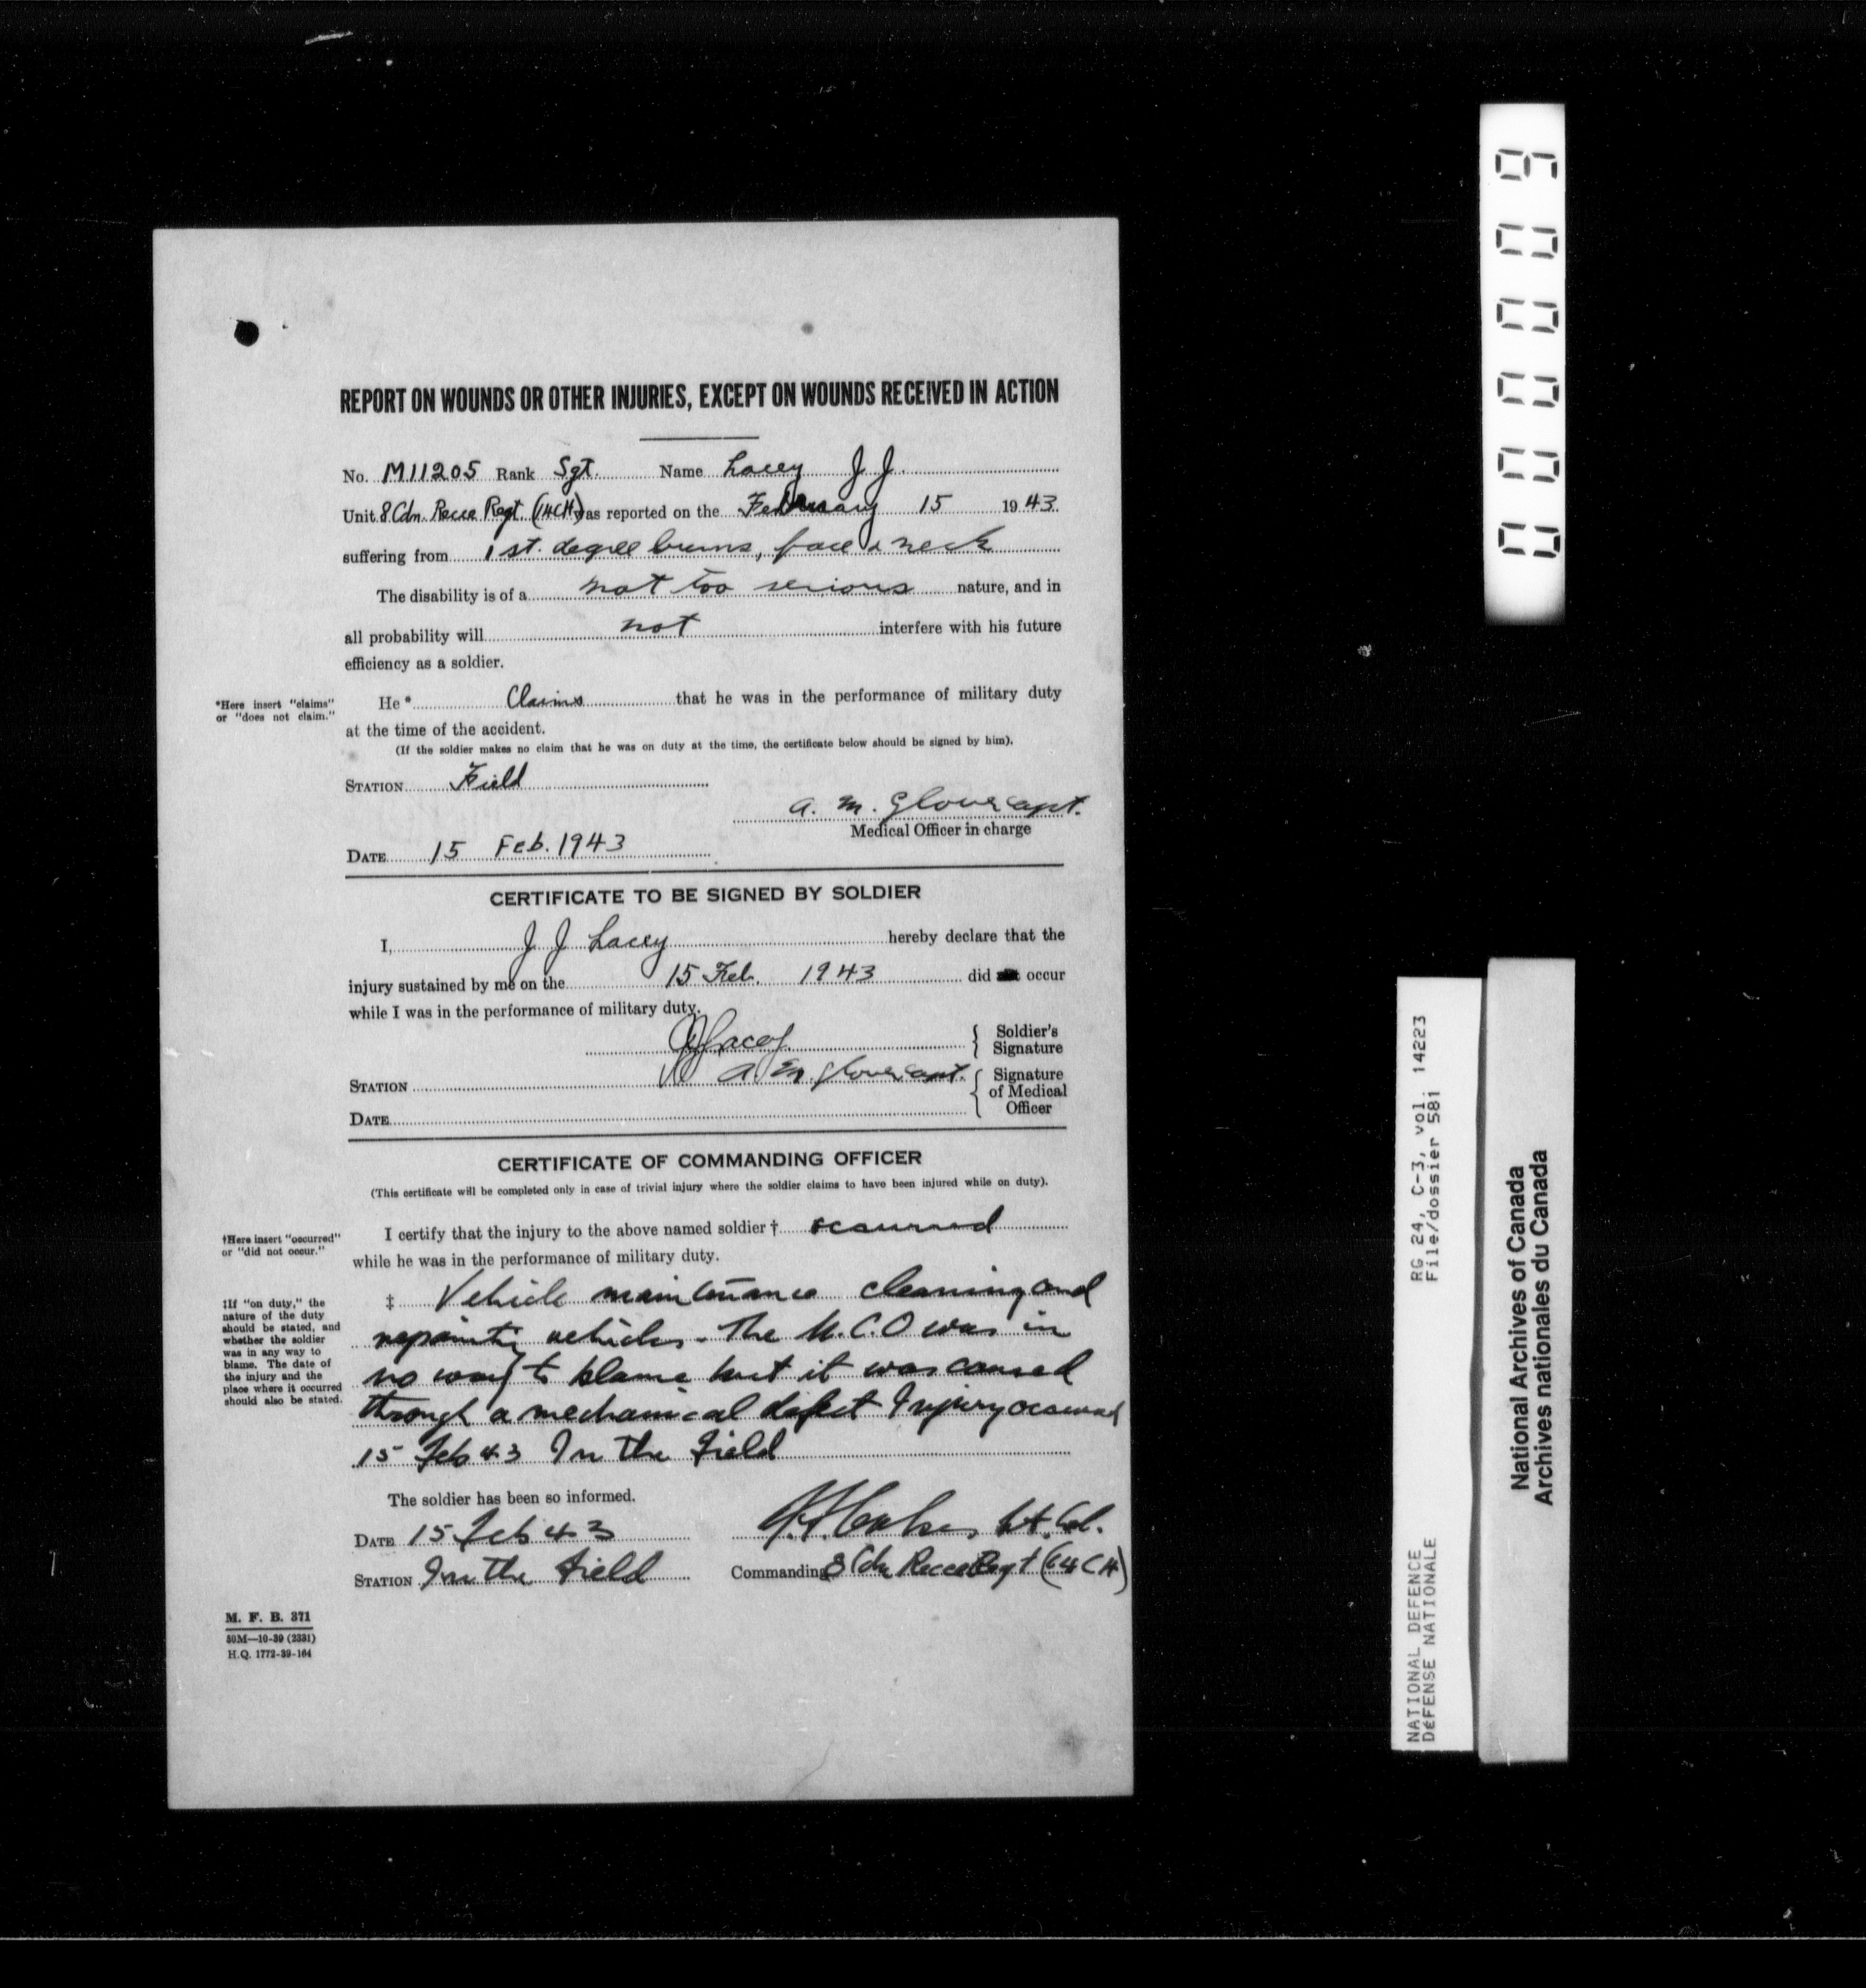 REPORT ON WOUNDS OR OTHER INJURIES, EXCEPT ON WOUNDS RECEIVED IN ACTION
No. M11205 Rank Sgt Name Lacey J J.
Unit 8 Cdn Recce Regt. (14CH) was reported on the February 15 1943.
suffering from 1st. degree burns, face & neck
The disability is of a not too serious nature, and in
all probability will not interfere with his future
efficiency as a soldier.
*Here insert "claims"
or "does not claim."
He * Claims that he was in the performance of military duty
at the time of the accident.
(If the soldier makes no claim that he was on duty at the time, the certificate below should be signed by him).
STATION Field
A. M. Glover Capt.
Medical Officer in charge
DATE 15 Feb. 1943
CERTIFICATE TO BE SIGNED BY SOLDIER
I, J J Lacey hereby declare that the
injury sustained by me on the 15 Feb. 1943 did occur
while I was in the performance of military duty.
JJ Lacey. Soldier's
Signature
STATION A. M. Glover Capt. Signature
of Medical
Officer
DATE
CERTIFICATE OF COMMANDING OFFICER
(This certificate will be completed only in case of trivial injury where the soldier claims to have been injured while on duty).
†Here insert "occurred"
or "did not occur."
I certify that the injury to the above named soldier † occurred
while he was in the performance of military duty.
‡If "on duty," the
nature of the duty
should be stated, and
whether the soldier
was in any way to
blame. The date of
the injury and the
place where it occurred
should also be stated.
‡ Vehicle maintenance cleaning and
repainting vehicles. The N.C.O was in
no way to blame but it was caused
through a mechanical defect Injury occurred
15 Feb 43 In the Field
The soldier has been so informed.
DATE 15 Feb 43
Lt. Col.
STATION In the Field
Commanding 8 Cdn Recce Regt (14 CH)
M. F. B. 371
50M—10-39 (2331)
H.Q. 1772-39-164
000009
RG 24, C-3, vol. 14223
File/dossier 581
NATIONAL DEFENCE
DéFENSE NATIONALE
National Archives of Canada
Archives nationales du Canada